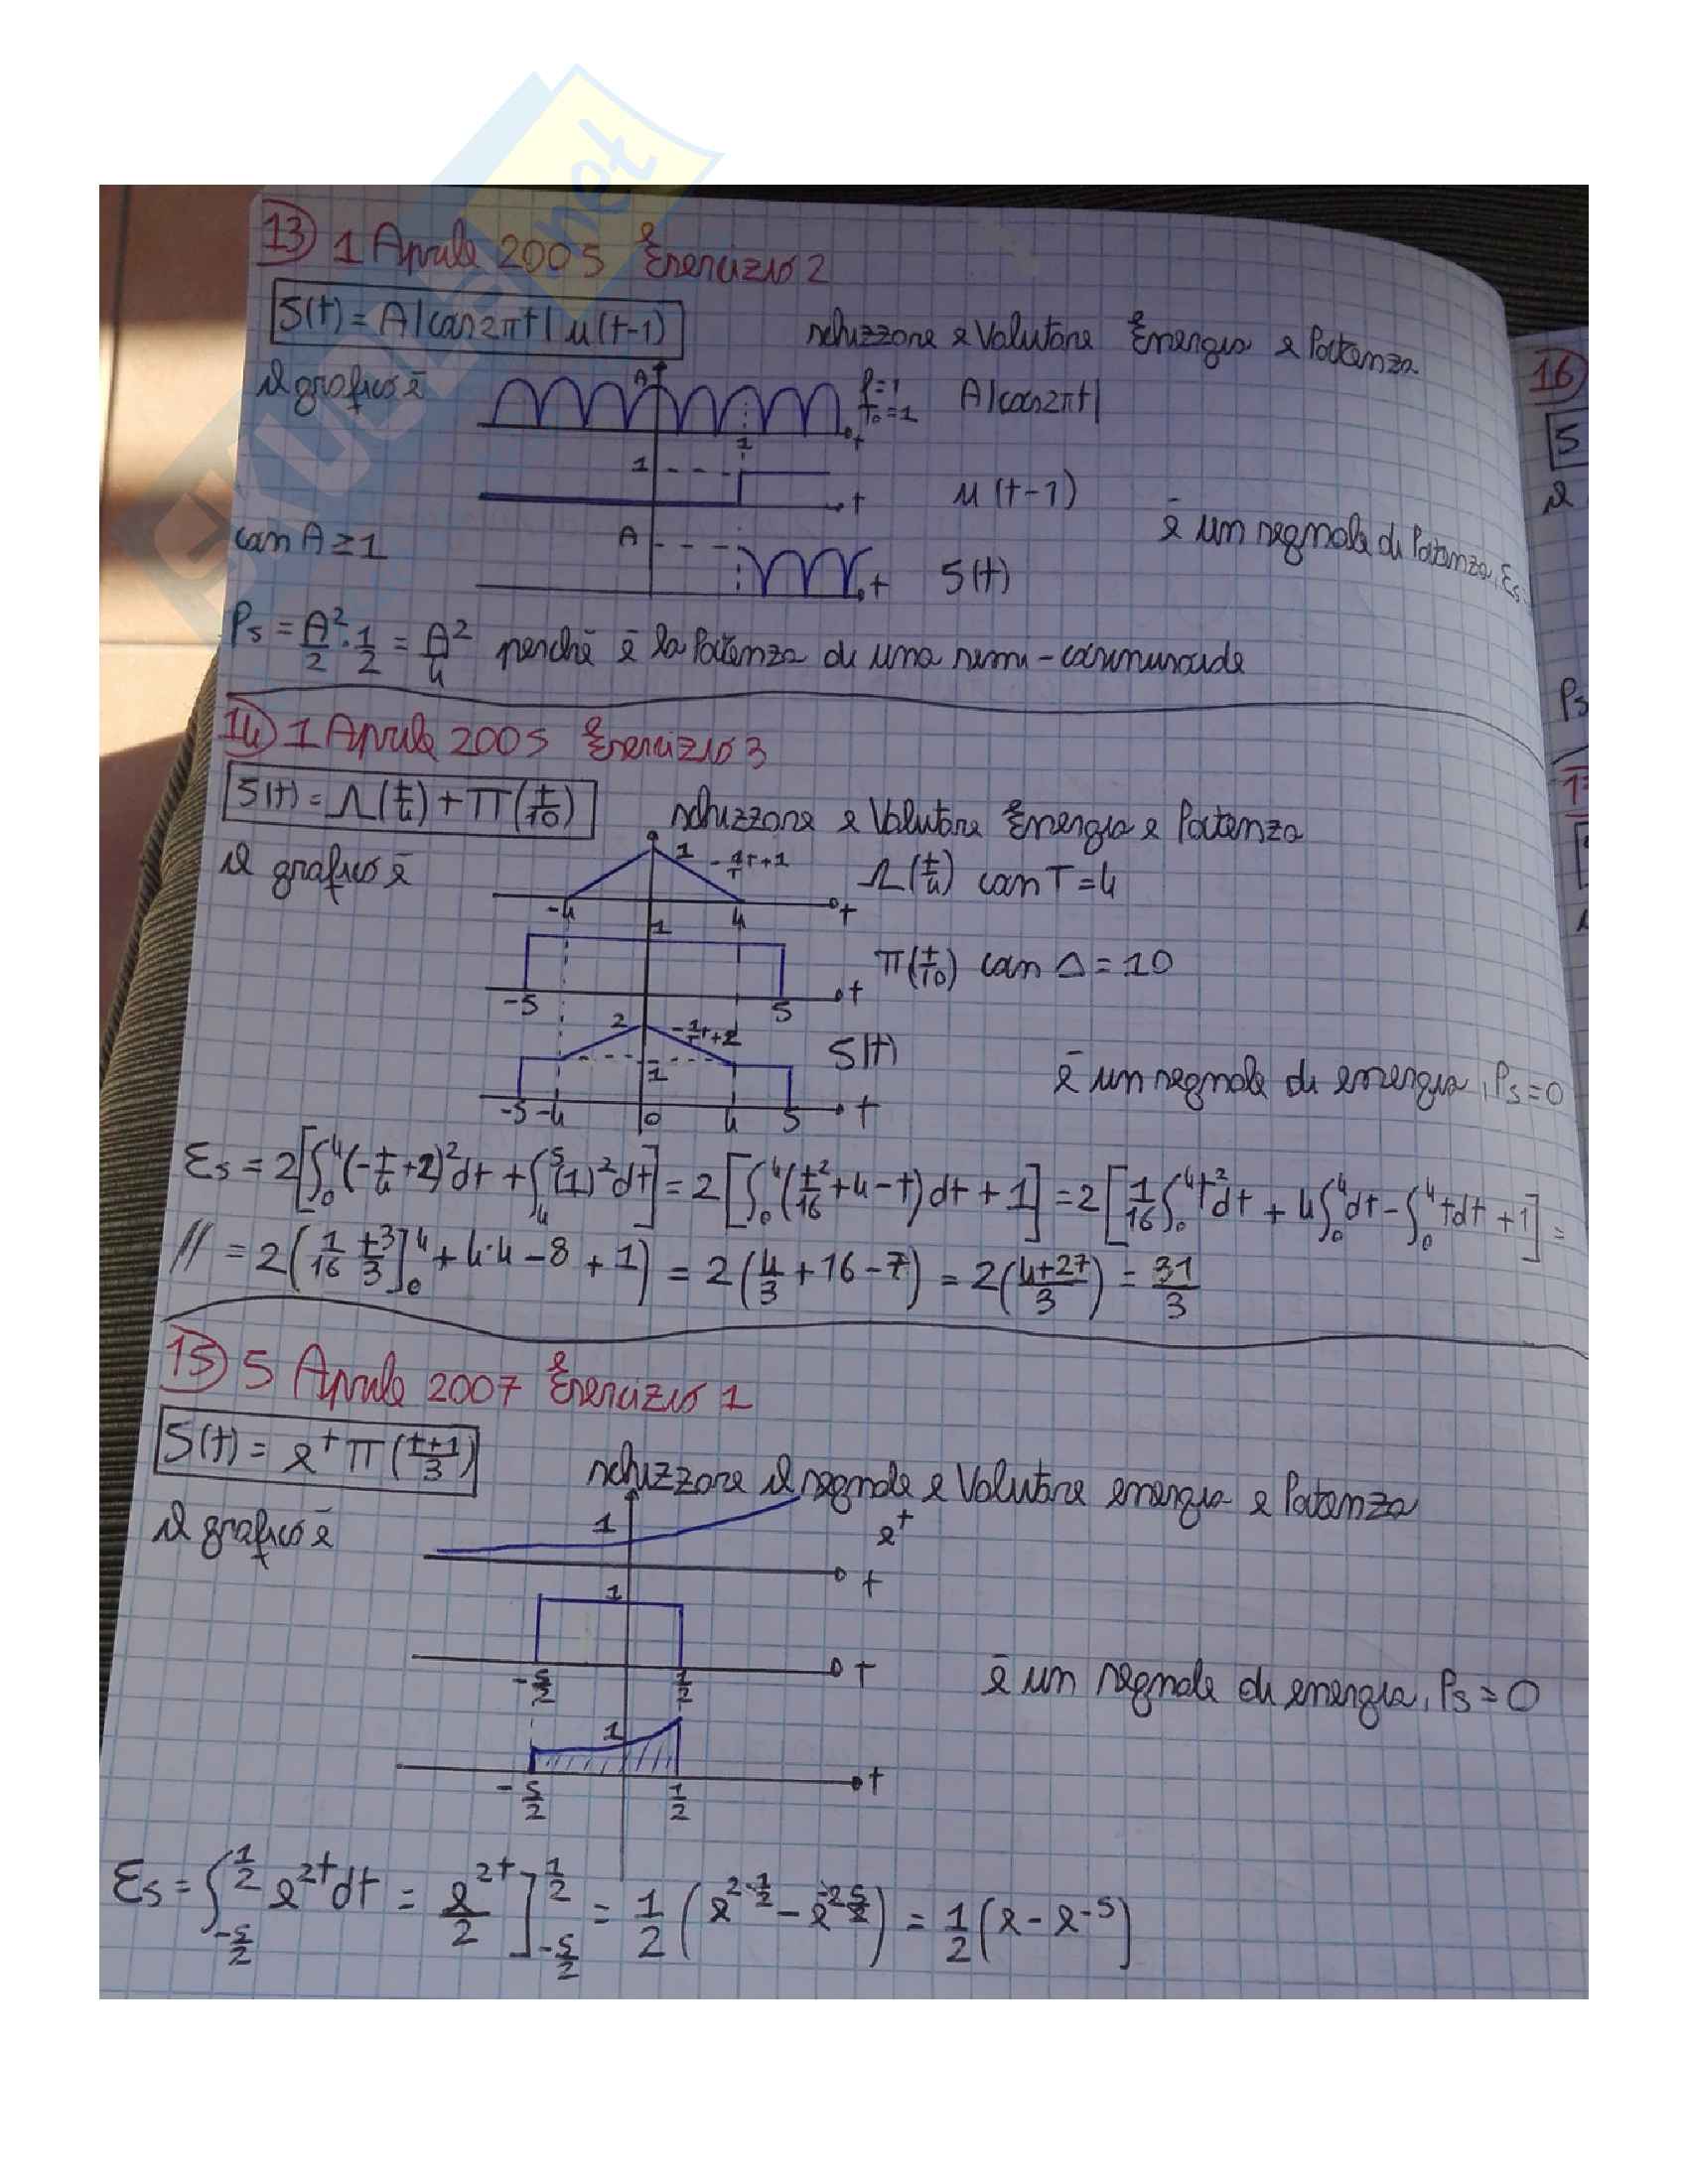 SKUOLA.net
13) 1 Aprile 2005 Esercizio 2
S(t) = A|cos2πt| u(t-1) schizzare e Valutare Energia e Potenza
il grafico è
A f=1 T₀=1 A|cos2πt|
1 t
1 t u(t-1)
con A≥1 A t S(t) è un segnale di Potenza, Es
Ps = A²/2 · 1/2 = A²/4 perchè è la Potenza di una semi-cosinusoide
14) 1 Aprile 2005 Esercizio 3
S(t) = Λ(t/4) + π(t/10) schizzare e Valutare Energia e Potenza
il grafico è 1 -1/T t+1 Λ(t/4) con T=4
-4 4 t
1 π(t/10) con Δ=10
-5 5 t
2 -1/T t+2 S(t)
1 è un segnale di energia, Ps=0
-5 -4 0 4 5 t
Es = 2[∫₀⁴(-t/4+2)²dt + ∫₄⁵(1)²dt] = 2[∫₀⁴(t²/16+4-t)dt + 1] = 2[1/16∫₀⁴t²dt + 4∫₀⁴dt - ∫₀⁴tdt + 1] =
// = 2(1/16 t³/3]₀⁴ + 4·4 - 8 + 1) = 2(4/3 + 16 - 7) = 2(4+27/3) = 31/3
15) 5 Aprile 2007 Esercizio 1
S(t) = e^t π(t+1/3) schizzare il segnale e Valutare energia e Potenza
il grafico è 1 e^t
t
1
-5/2 1/2 t è un segnale di energia, Ps=0
1
-5/2 1/2 t
Es = ∫_{-5/2}^{1/2} e^{2t}dt = e^{2t}/2]_{-5/2}^{1/2} = 1/2(e^{2·1/2} - e^{-2 5/2}) = 1/2(e - e^{-5})
16)
S
il
Ps